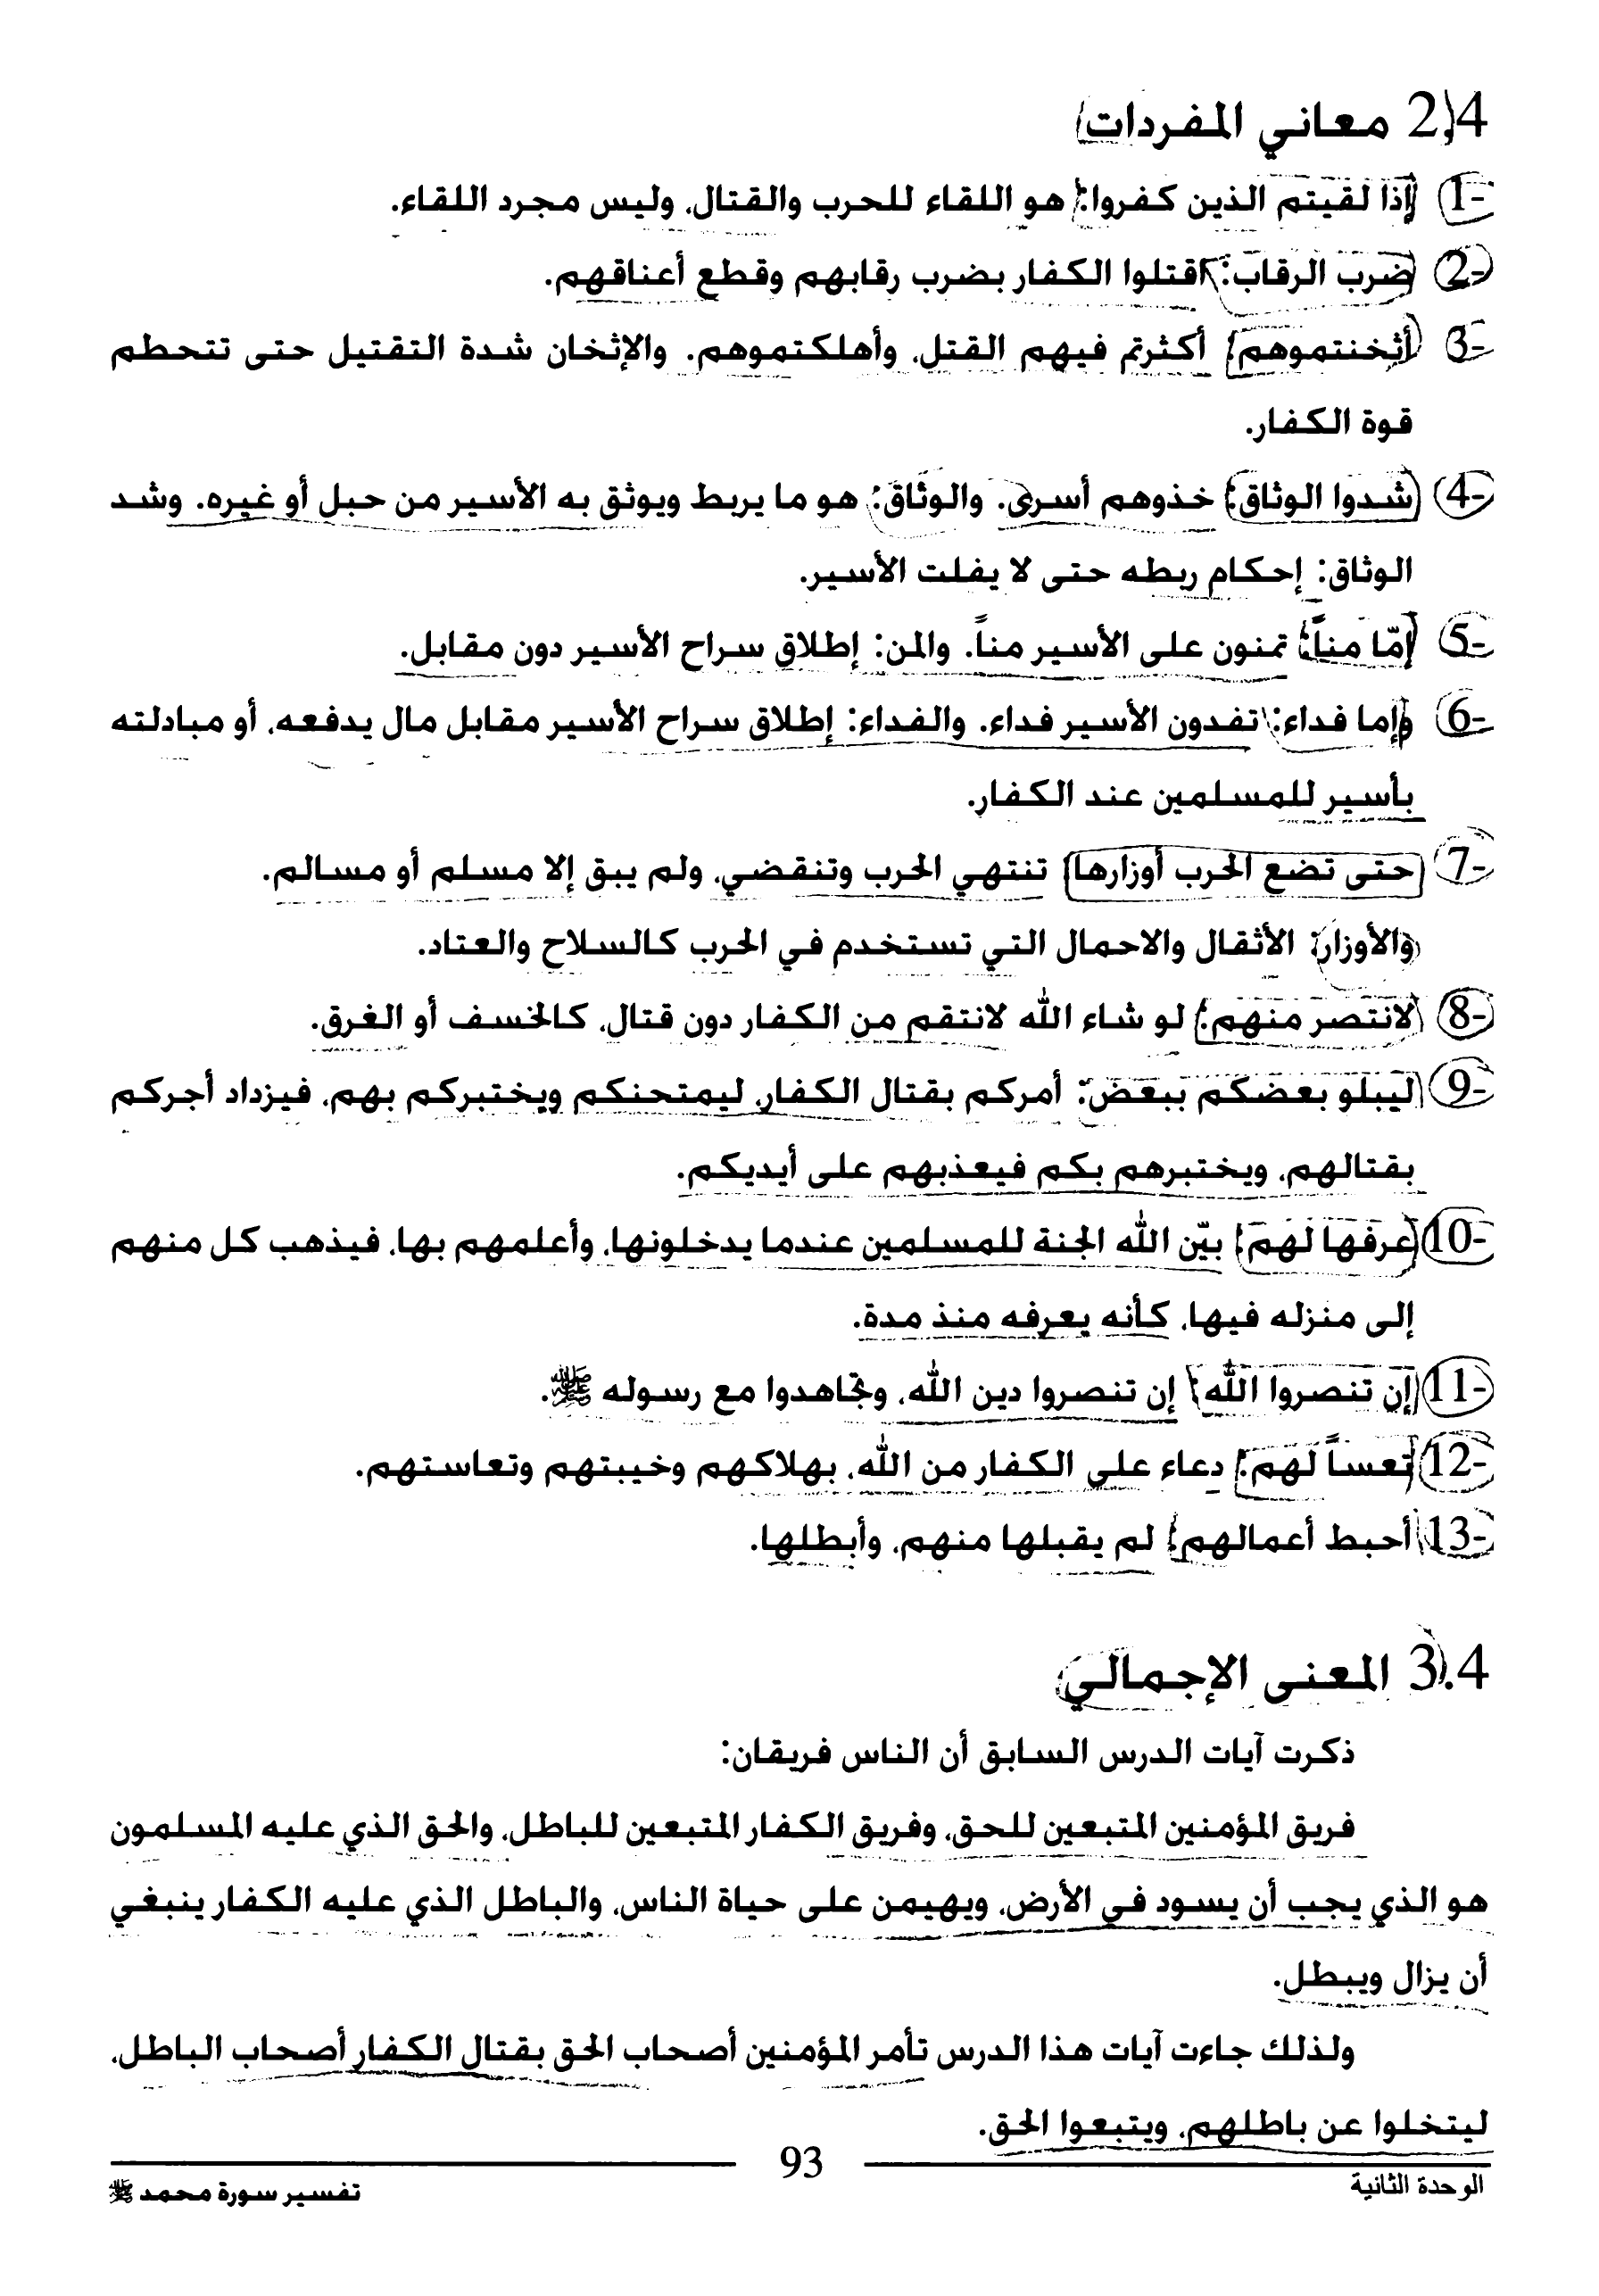 2.4 معاني المفردات
1- إذا لقيتم الذين كفروا: هو اللقاء للحرب والقتال، وليس مجرد اللقاء.
2- ضرب الرقاب: اقتلوا الكفار بضرب رقابهم وقطع أعناقهم.
3- أثخنتموهم: أكثرتم فيهم القتل، وأهلكتموهم. والإثخان شدة التقتيل حتى تتحطم
قوة الكفار.
4- شدوا الوثاق: خذوهم أسرى. والوثاق: هو ما يربط ويوثق به الأسير من حبل أو غيره. وشد
الوثاق: إحكام ربطه حتى لا يفلت الأسير.
5- إمّا مناً: تمنون على الأسير مناً. والمن: إطلاق سراح الأسير دون مقابل.
6- وإما فداء: تفدون الأسير فداء. والفداء: إطلاق سراح الأسير مقابل مال يدفعه، أو مبادلته
بأسير للمسلمين عند الكفار.
7- حتى تضع الحرب أوزارها: تنتهي الحرب وتنقضي، ولم يبق إلا مسلم أو مسالم.
والأوزار: الأثقال والاحمال التي تستخدم في الحرب كالسلاح والعتاد.
8- لانتصر منهم: لو شاء الله لانتقم من الكفار دون قتال، كالخسف أو الغرق.
9- ليبلو بعضكم ببعض: أمركم بقتال الكفار، ليمتحنكم ويختبركم بهم، فيزداد أجركم
بقتالهم، ويختبرهم بكم فيعذبهم على أيديكم.
10- عرفها لهم: بيّن الله الجنة للمسلمين عندما يدخلونها، وأعلمهم بها، فيذهب كل منهم
إلى منزله فيها، كأنه يعرفه منذ مدة.
11- إن تنصروا الله: إن تنصروا دين الله، وتجاهدوا مع رسوله ﷺ.
12- تعساً لهم: دعاء على الكفار من الله، بهلاكهم وخيبتهم وتعاستهم.
13- أحبط أعمالهم: لم يقبلها منهم، وأبطلها.
3.4 المعنى الإجمالي
ذكرت آيات الدرس السابق أن الناس فريقان:
فريق المؤمنين المتبعين للحق، وفريق الكفار المتبعين للباطل، والحق الذي عليه المسلمون
هو الذي يجب أن يسود في الأرض، ويهيمن على حياة الناس، والباطل الذي عليه الكفار ينبغي
أن يزال ويبطل.
ولذلك جاءت آيات هذا الدرس تأمر المؤمنين أصحاب الحق بقتال الكفار أصحاب الباطل،
ليتخلوا عن باطلهم، ويتبعوا الحق.
93
الوحدة الثانية
تفسير سورة محمد ﷺ